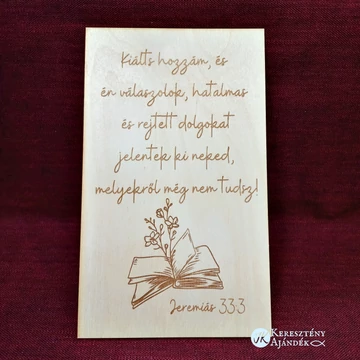 Kiálts hozzám, és
én válaszolok, hatalmas
és rejtett dolgokat
jelentek ki neked,
melyekről még nem tudsz!
Jeremiás 33:3
KERESZTÉNY
AJÁNDÉK